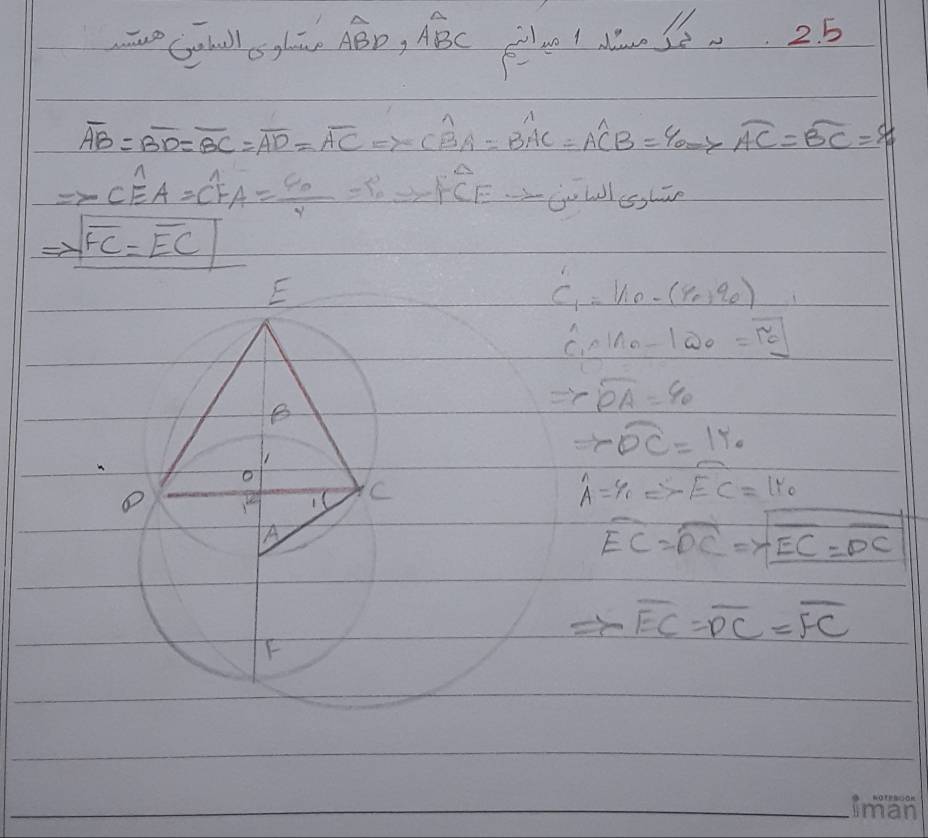 2.5 . به کمک مسئله ۱ میدانیم ABC و ABD متساوی الساقین هستند
AB = BD = BC = AD = AC => CBA = BAC = ACB = ۶۰ => AC = BC = ۶۰
=> CEA = CFA = ۶۰/۲ = ۳۰ => FCE => متساوی الساقین
=> FC = EC
E
C₁ = ۱۸۰ - (۶۰+۹۰)
C₁ = ۱۸۰ - ۱۵۰ = ۳۰
=> DA = ۶۰
B
=> DC = ۱۲۰
O
D
C
A = ۶۰ => EC = ۱۲۰
A
EC = DC => EC = DC
=> EC = DC = FC
F
NOTEBOOK
iman